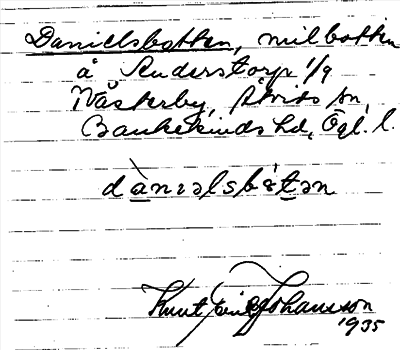 Danielsbotten, milbotten
å Anderstorp 1/9
Västerby, Åtvids sn,
Bankekinds hd, Ögl. l.
dànɪəlsbɵ̀tən
Knut Johansson
1935